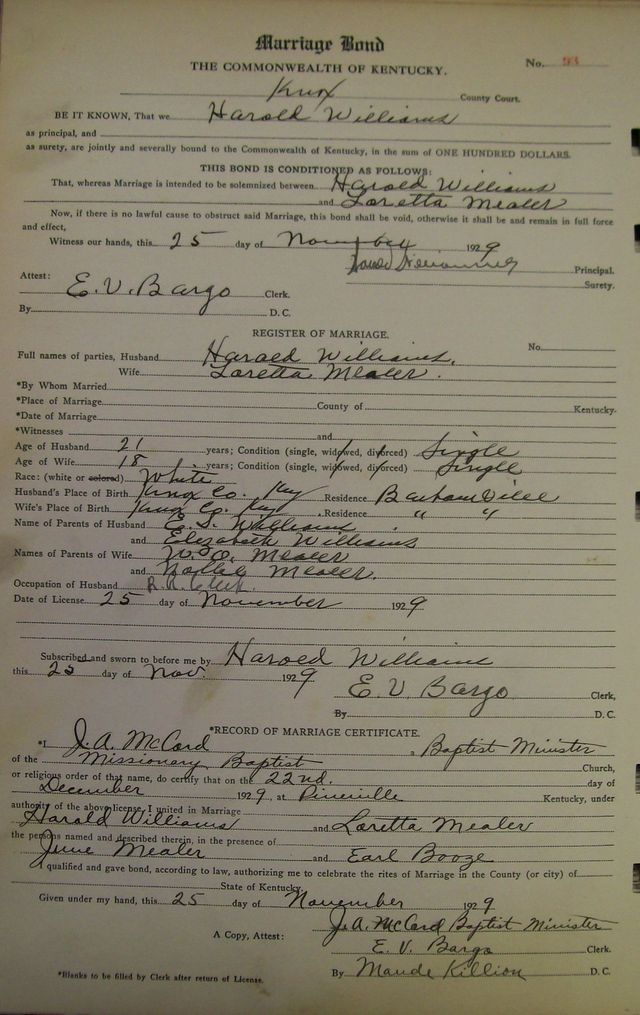 Marriage Bond
THE COMMONWEALTH OF KENTUCKY.
No. 93
Knox County Court.
BE IT KNOWN, That we Harold Williams
as principal, and
as surety, are jointly and severally bound to the Commonwealth of Kentucky, in the sum of ONE HUNDRED DOLLARS.
THIS BOND IS CONDITIONED AS FOLLOWS:
That, whereas Marriage is intended to be solemnized between Harold Williams
and Loretta Mealer
Now, if there is no lawful cause to obstruct said Marriage, this bond shall be void, otherwise it shall be and remain in full force
and effect,
Witness our hands, this 25 day of November 1929
Principal.
Attest:
Surety.
E. V. Bargo Clerk.
By D. C.
REGISTER OF MARRIAGE.
No.
Full names of parties, Husband Harold Williams.
Wife Loretta Mealer.
*By Whom Married
*Place of Marriage County of Kentucky.
*Date of Marriage
*Witnesses and
Age of Husband 21 years; Condition (single, widowed, divorced) Single
Age of Wife 18 years; Condition (single, widowed, divorced) Single
Race: (white or colored) White
Husband's Place of Birth Knox Co. Ky Residence Barbourville
Wife's Place of Birth Knox Co. Ky. Residence " "
Name of Parents of Husband E. S. Williams.
and Elizabeth Williams
Names of Parents of Wife W. O. Mealer
and Mealer.
Occupation of Husband R. R. Clerk.
Date of License 25 day of November 1929
Subscribed and sworn to before me by Harold Williams
this 25 day of Nov. 1929
E. V. Bargo Clerk,
By D. C.
*RECORD OF MARRIAGE CERTIFICATE.
*I J. A. McCord a Baptist Minister
of the Missionary Baptist Church,
or religious order of that name, do certify that on the 22nd. day of
December 1929, at Pineville Kentucky, under
authority of the above license, I united in Marriage
Harold Williams and Loretta Mealer
the persons named and described therein, in the presence of
June Mealer and Earl Booze
I qualified and gave bond, according to law, authorizing me to celebrate the rites of Marriage in the County (or city) of
State of Kentucky
Given under my hand, this 25 day of November 1929
J. A. McCord Baptist Minister
A Copy, Attest: E. V. Bargo Clerk.
By Maude Killion D. C.
*Blanks to be filled by Clerk after return of License.